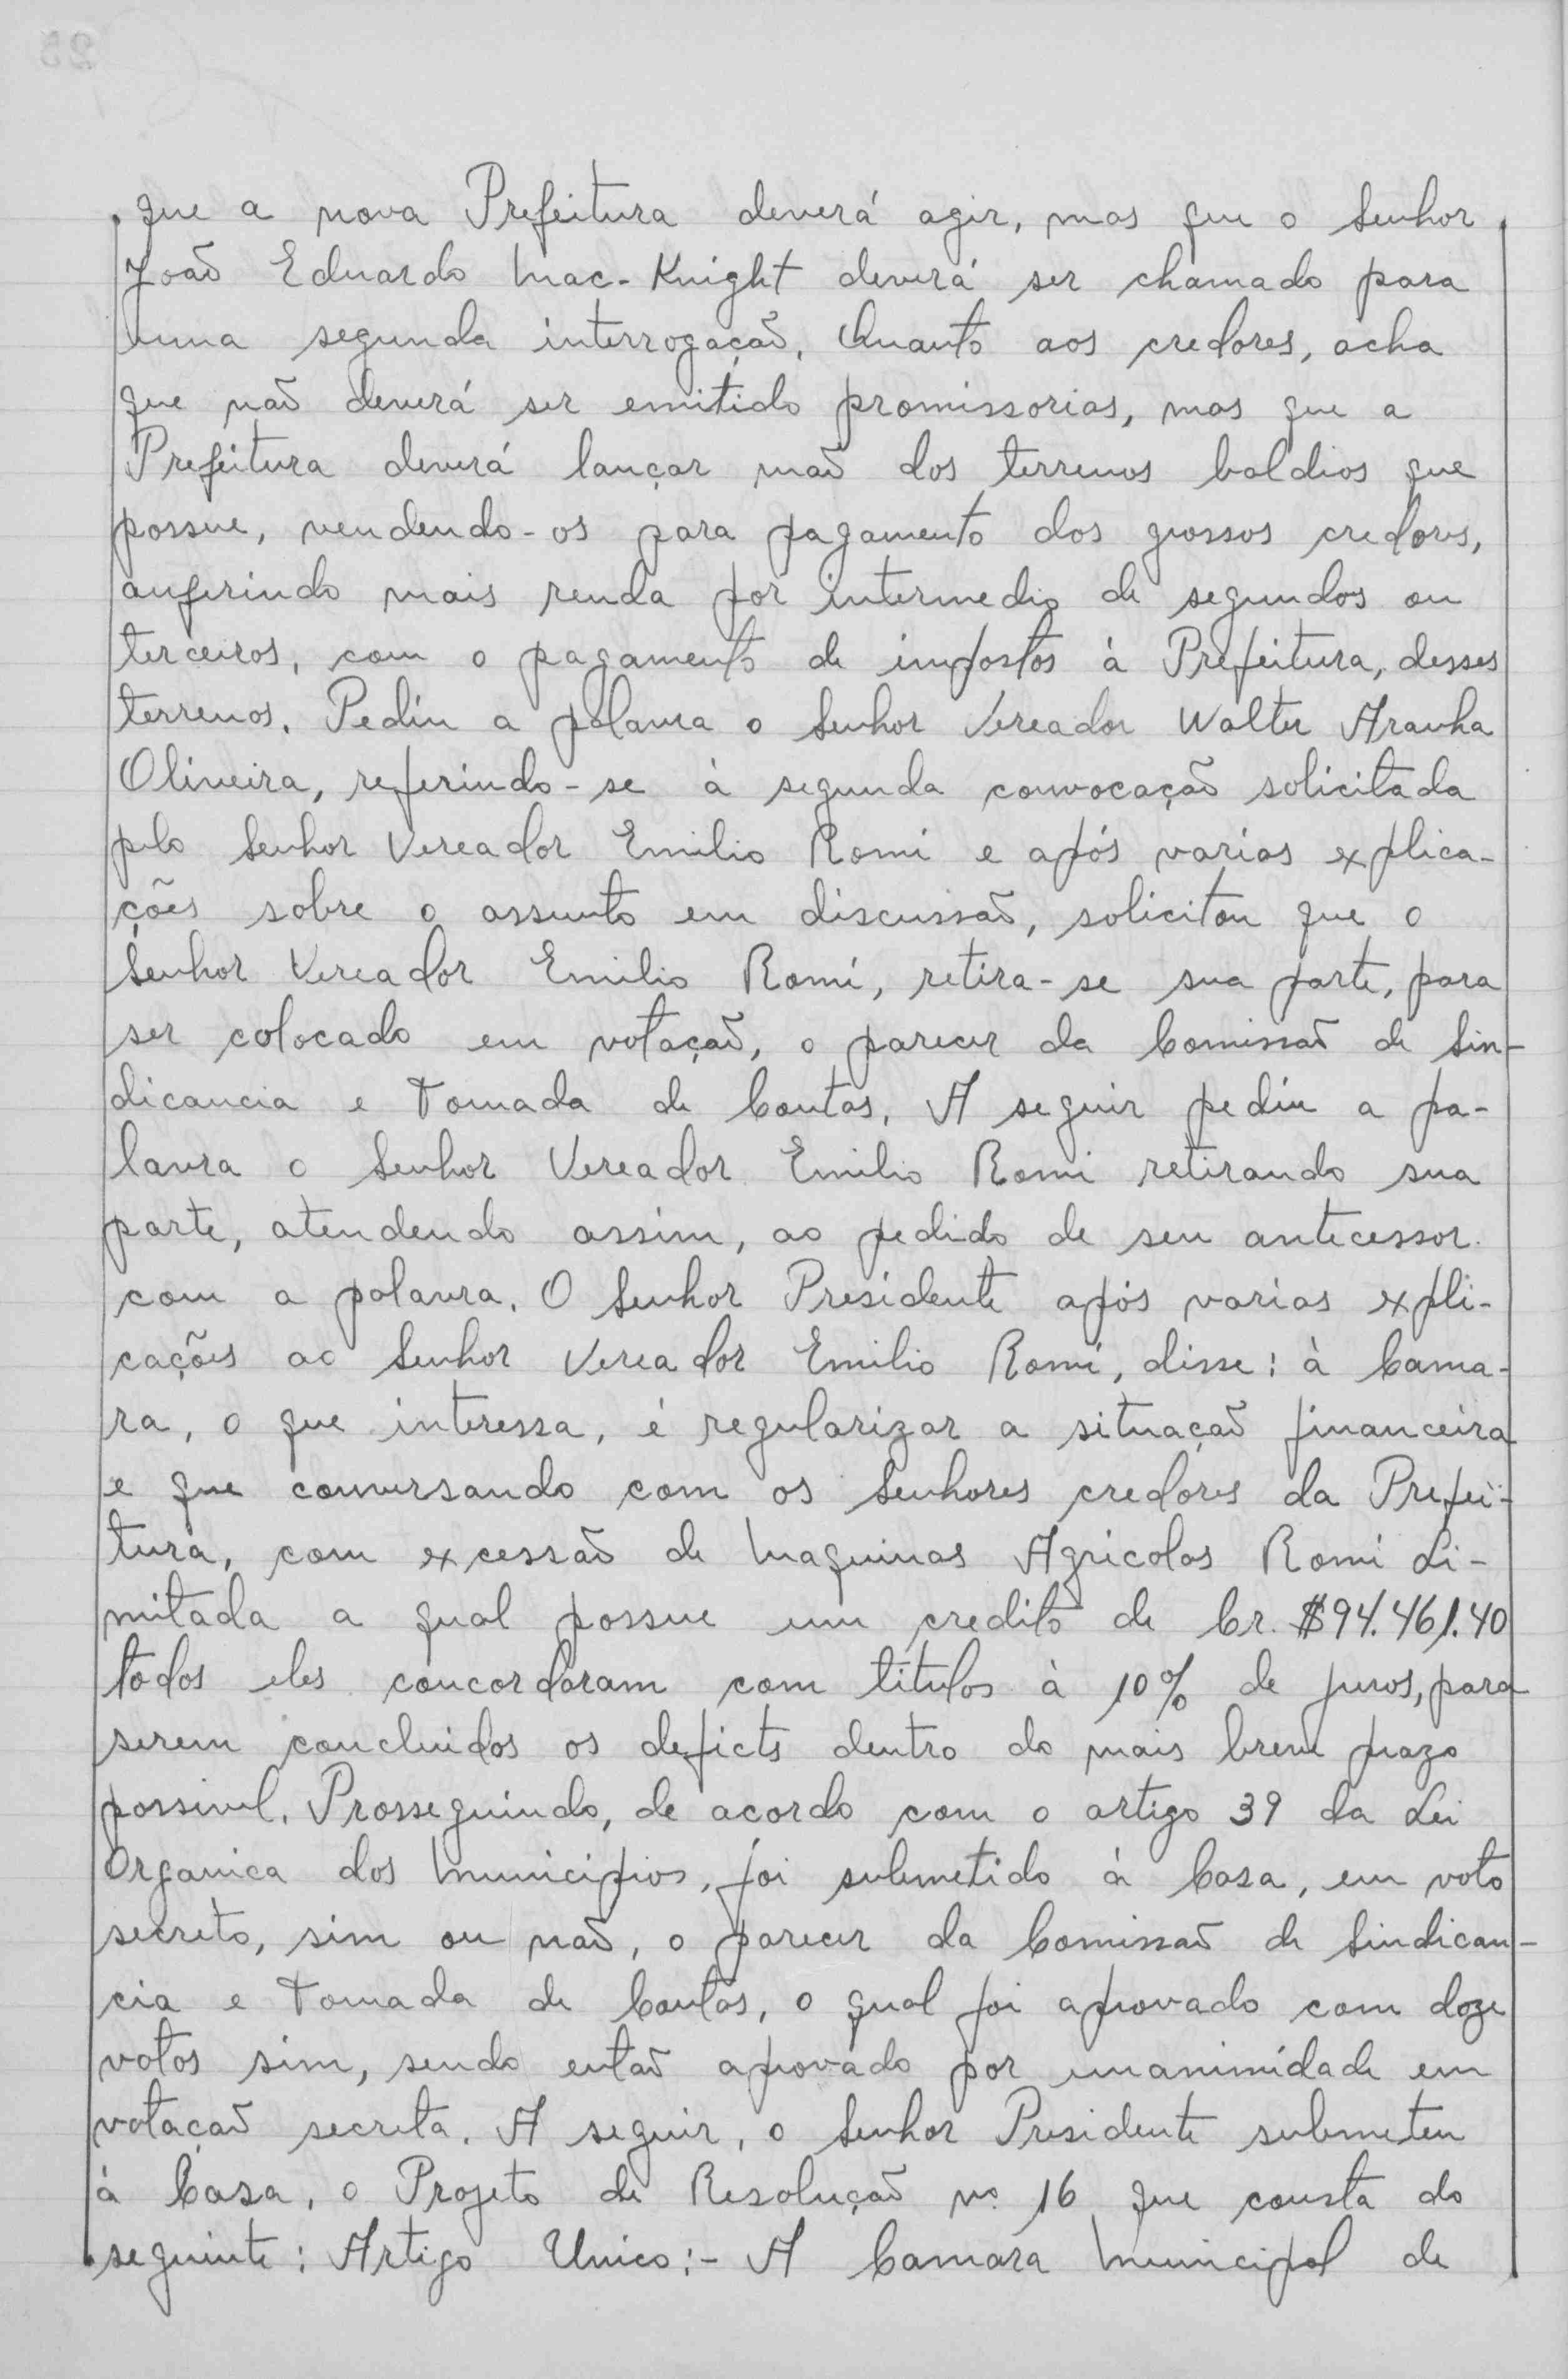 que a nova Prefeitura deverá agir, mas que o Senhor
João Eduardo Mac-Knight deverá ser chamado para
uma segunda interrogação. Quanto aos credores, acha
que não deverá ser emitido promissorias, mas que a
Prefeitura deverá lançar mão dos terrenos baldios que
possue, vendendo-os para pagamento dos grossos credores,
auferindo mais renda por intermedio de segundos ou
terceiros, com o pagamento de impostos à Prefeitura, desses
terrenos. Pediu a palavra o Senhor Vereador Walter Aranha
Oliveira, referindo-se à segunda convocação solicitada
pelo Senhor Vereador Emilio Romi e após varias explica-
ções sobre o assunto em discussão, solicitou que o
Senhor Vereador Emilio Romi, retira-se sua parte, para
ser colocado em votação, o parecer da Comissão de Sin-
dicancia e Tomada de Contas. A seguir pediu a pa-
lavra o Senhor Vereador Emilio Romi retirando sua
parte, atendendo assim, ao pedido de seu antecessor
com a palavra. O Senhor Presidente após varias expli-
cações ao Senhor Vereador Emilio Romi, disse: à Cama-
ra, o que interessa, é regularizar a situação financeira
e que conversando com os Senhores credores da Prefei-
tura, com excessão de Maquinas Agricolas Romi Li-
mitada a qual possue um credito de Cr. $94.461.40
todos eles concordaram com titulos à 10% de juros, para
serem concluidos os deficts dentro do mais breve prazo
possivel. Prosseguindo, de acordo com o artigo 39 da Lei
Organica dos Municipios, foi submetido à Casa, em voto
secreto, sim ou não, o parecer da Comissão de Sindican-
cia e Tomada de Contas, o qual foi aprovado com doze
votos sim, sendo então aprovado por unanimidade em
votação secreta. A seguir, o Senhor Presidente submeteu
à Casa, o Projeto de Resolução nº 16 que consta do
seguinte: Artigo Unico:- A Camara Municipal de